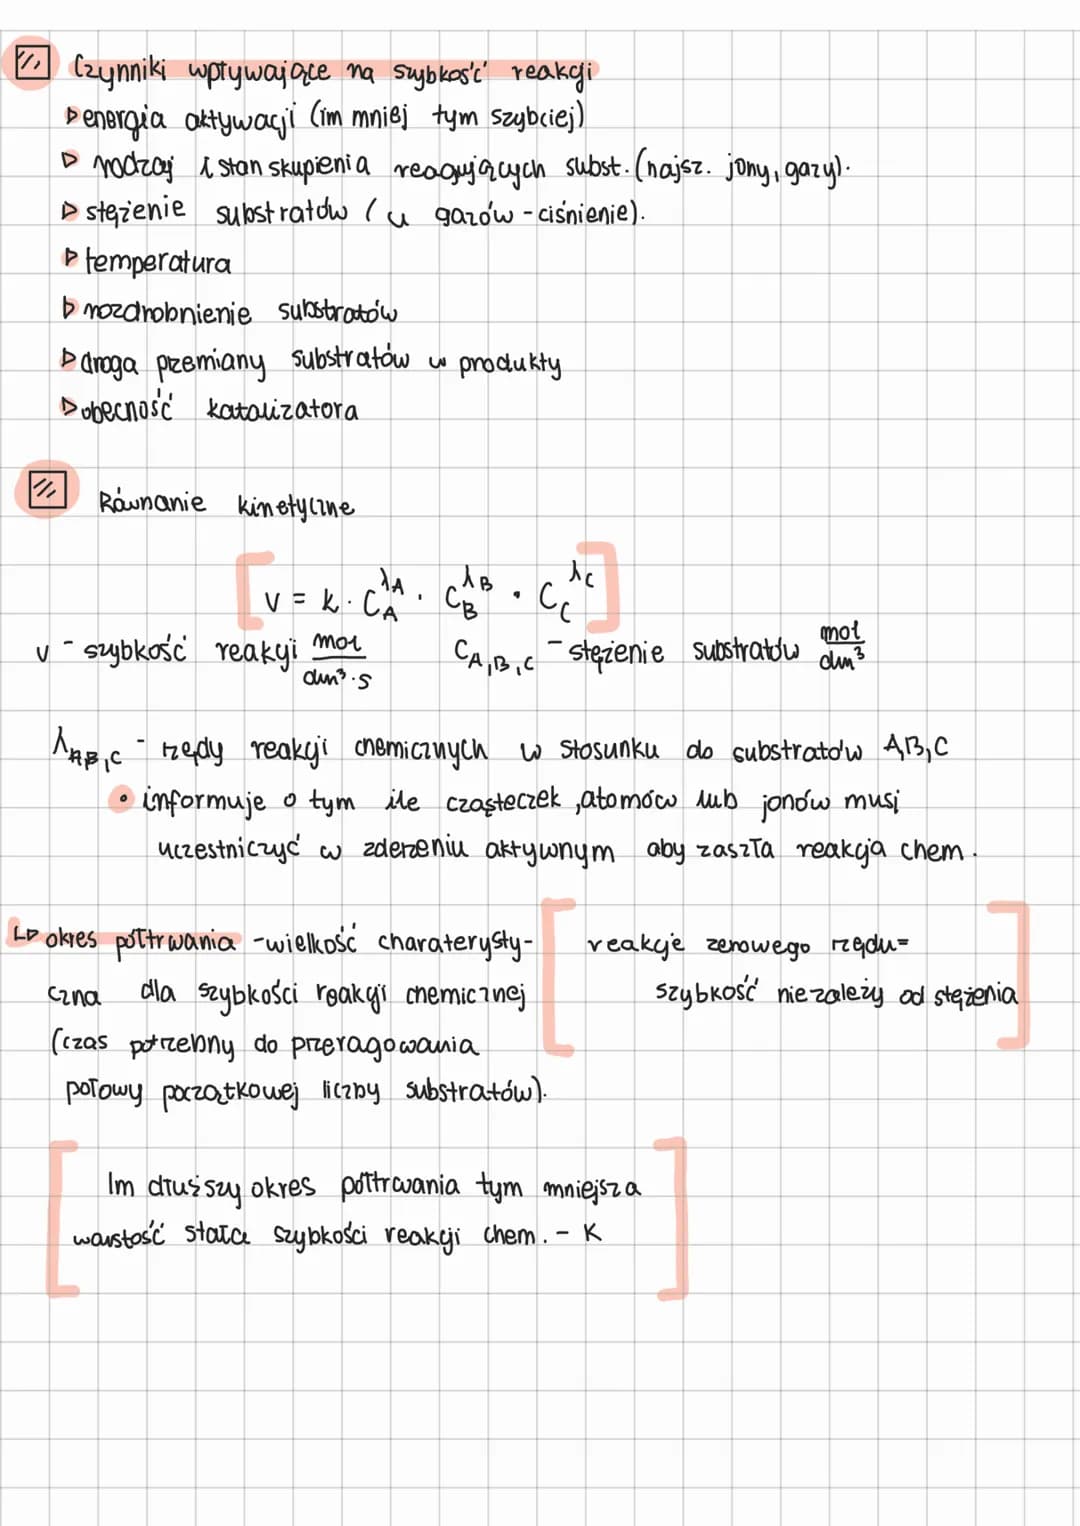 Czynniki wpływające na szybkość reakcji
▷ energia aktywacji (im mniej tym szybciej)
▷ rodzaj i stan skupienia reagujących subst. (najsz. jony, gazy).
▷ stężenie substratów (u gazów - ciśnienie).
▷ temperatura
▷ rozdrobnienie substratów
▷ droga przemiany substratów w produkty
▷ obecność katalizatora
Równanie kinetyczne
[v = k · C_A^λA · C_B^λB · C_C^λC]
v - szybkość reakcji mol/dm³·s C_A,B,C - stężenie substratów mol/dm³
λ_A,B,C - rzędy reakcji chemicznych w stosunku do substratów A,B,C
• informuje o tym ile cząsteczek, atomów lub jonów musi
uczestniczyć w zderzeniu aktywnym aby zaszła reakcja chem.
↳ okres półtrwania - wielkość charaterysty-
czna dla szybkości reakcji chemicznej
(czas potrzebny do przeragowania
połowy początkowej liczby substratów).
[reakcje zerowego rzędu =
szybkość niezależy od stężenia]
[Im dłuższy okres półtrwania tym mniejsza
wartość stała szybkości reakcji chem. - K]